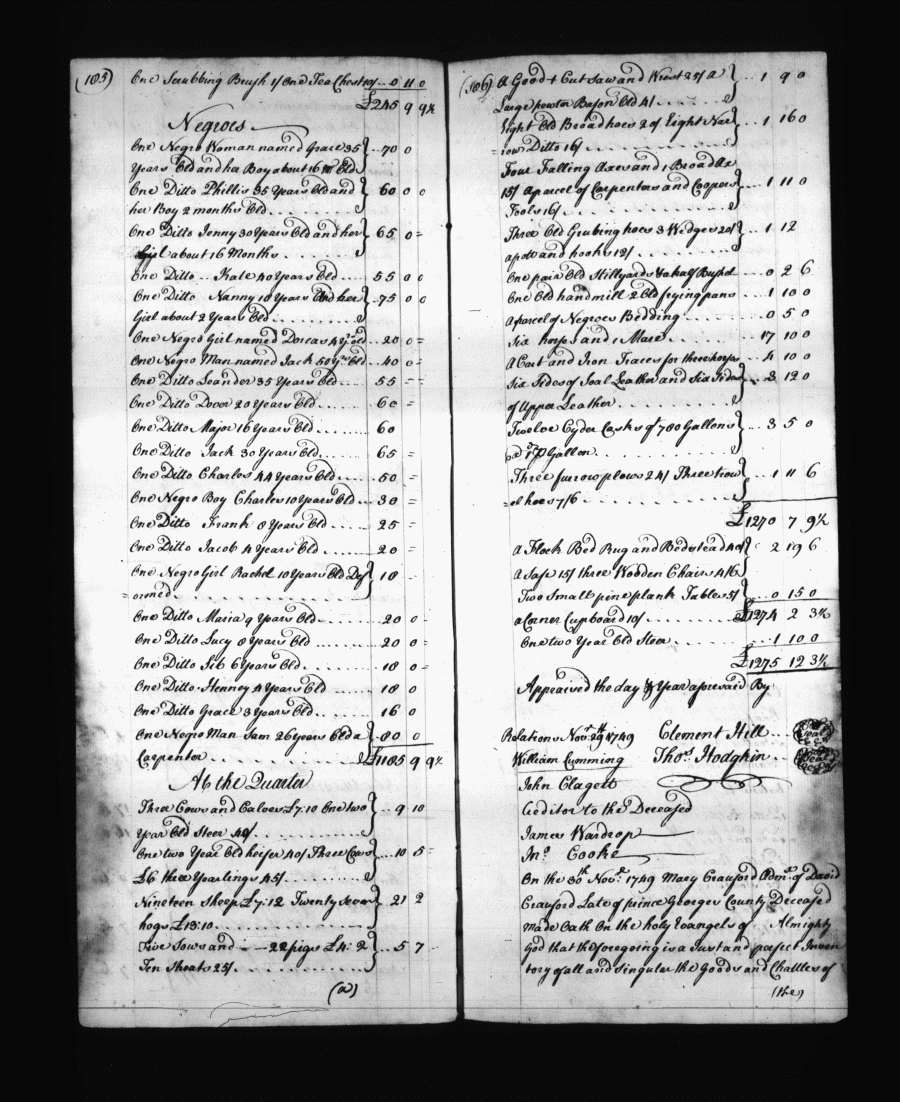 (185) One Scrubbing Brush 1/ One Tea Chest 10/ .. 0 11 0
£245 9 9½
Negroes
One Negro Woman named Grace 35 } .. 70 0
Years Old and her Boy about 16 M Old
One Ditto Phillis 35 Years Old and } 60 0 0
her Boy 2 months Old
One Ditto Jenny 30 Years Old and her } 65 0 =
Girl about 16 Months
One Ditto .. Kate 40 Years Old .... 55 0 0
One Ditto Nanny 18 Years Old her } .. 75 0 0
Girl about 2 Years Old
One Negro Girl named Dorcas 4 Yrs old .. 20 0 =
One Negro Man named Jack 50 Yrs Old .. 40 0 =
One Ditto Leander 35 Years Old .... 55 = =
One Ditto Dover 20 Years Old ..... 60 =
One Ditto Major 16 Years Old .... 60
One Ditto Jack 30 Years Old ..... 65 =
One Ditto Charles 44 Years Old .... 50 =
One Negro Boy Charles 10 Years Old .. 30 =
One Ditto Frank 8 Years Old ..... 25 =
One Ditto Jacob 4 Years Old ...... 20 =
One Negro Girl Rachel 10 Years Old Def } 18 -
= ormed
One Ditto Maria 9 Years Old ..... 20 0 -
One Ditto Lucy 8 Years Old ..... 20 0 =
One Ditto Sib 6 Years Old ....... 18 0 =
One Ditto Henney 4 Years Old .... 18 0
One Ditto Grace 3 Years Old ..... 16 0
One Negro Man Sam 26 Years Old a } 80 0
Carpenter £1185 9 9½
At the Quarter
Three Cows and Calves £7:10 One two } .. 9 10
Year Old Steer 40/
One two Year Old heifer 40/ Three Cows } .. 10 5 =
£6 three Yearlings 45/
Nineteen Sheep £7:12 Twenty Seven } 21 2
hogs £13:10
Five Sows and - - 22 pigs £4:2 } .. 5 7 -
Ten Shoats 25/
(a)
(186) A Good + Cut Saw and Wrest 25/ a } .. 1 9 0
Large pewter Bason Old 4/
Eight Old Broad hoes 2 of Eight Nar } .. 1 16 0
= row Ditto 16/
Four Falling Axes and 1 Broad Ax
15/ A parcel of Carpenters and Coopers } .. 1 11 0
Tools 16/
Three Old Grubing hoes 3 Wedges 20/ } .. 1 12
a pott and hooks 12/
One pair Old Stillyards & a half Bushel .. 0 2 6
One Old hand mill 2 Old frying pans .. 1 10 0
A parcel of Negroes Bedding .... 0 5 0
Six horses and 1 Mare ..... 17 10 0
A Cart and Iron Traces for three horses .. 4 10 0
Six Sides of Soal Leather and Six Sides } .. 3 12 0
of Upper Leather
Twelve Cyder Casks of 780 Gallons } .. 3 5 0
Gallon
Three furrow plows 24/ Three trow } .. 1 11 6
= el hoes 7/6
£1270 7 9½
A Flock Bed Rug and Bedstead 40/ } 2 19 6
A Safe 15/ three Wooden Chairs 4/6
Two Small pine plank Tables 5/ } .. 0 15 0
a Corner Cupboard 10/ £1274 2 3½
One two Year Old Steer ..... 1 10 0
£1275 12 3½
Appraised the day & Year aforesaid By
Relations Novr. 29th 1749 Clement Hill
William Cumming Thos. Hodgkin
John Clagett
Creditor to the Deceased
James Wardrop
Jno. Cooke
On the 30th Novr. 1749 Mary Craufurd Admx. of David
Craufurd Late of prince Georges County Deceased
Made Oath On the holy Evangels of Almighty
God that the foregoing is a Just and perfect Inven
tory of all and singular the Goods and Chattles of
(the)